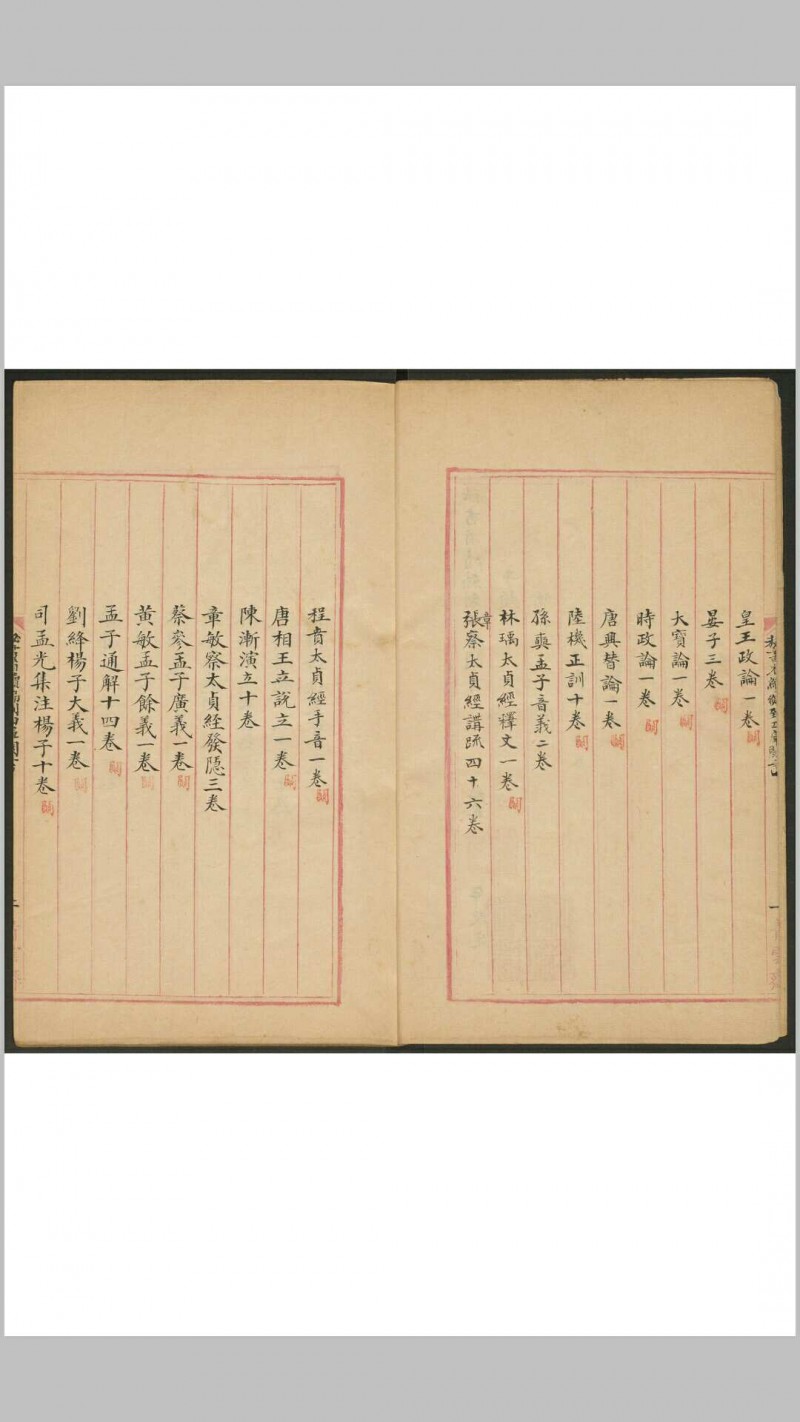 皇王政論一卷闕
晏子三卷闕
大寶論一卷闕
時政論一卷闕
唐興替論一卷闕
陸機正訓十卷闕
孫奭孟子音義二卷
林瑀太貞經釋文一卷闕
張章察太貞經講疏四十六卷
程賁太貞經手音一卷闕
唐相王立說立一卷闕
陳漸演立十卷
章敏察太貞経發隱三卷
蔡參孟子廣義一卷闕
黃敏孟子餘義一卷闕
孟子通解十四卷闕
劉絳楊子大義一卷闕
司孟光集注楊子十卷闕